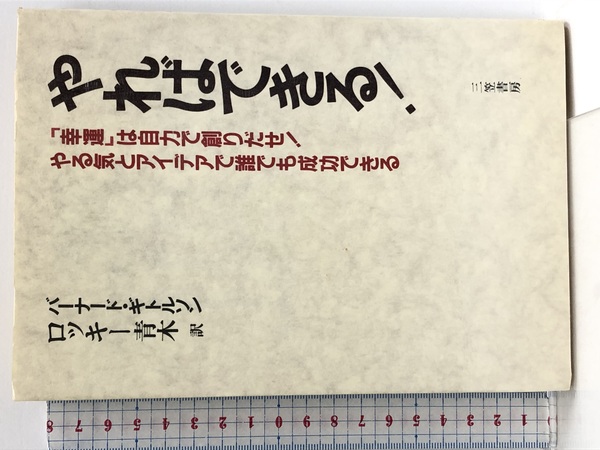 やればできる!
「幸運」は自力で創りだせ!
やる気とアイデアで誰でも成功できる
バーナード・ギトルソン
ロッキー青木 訳
三笠書房
8 7 6 5 4 3 2 1 0 1 2 3 4 5 6 7 8